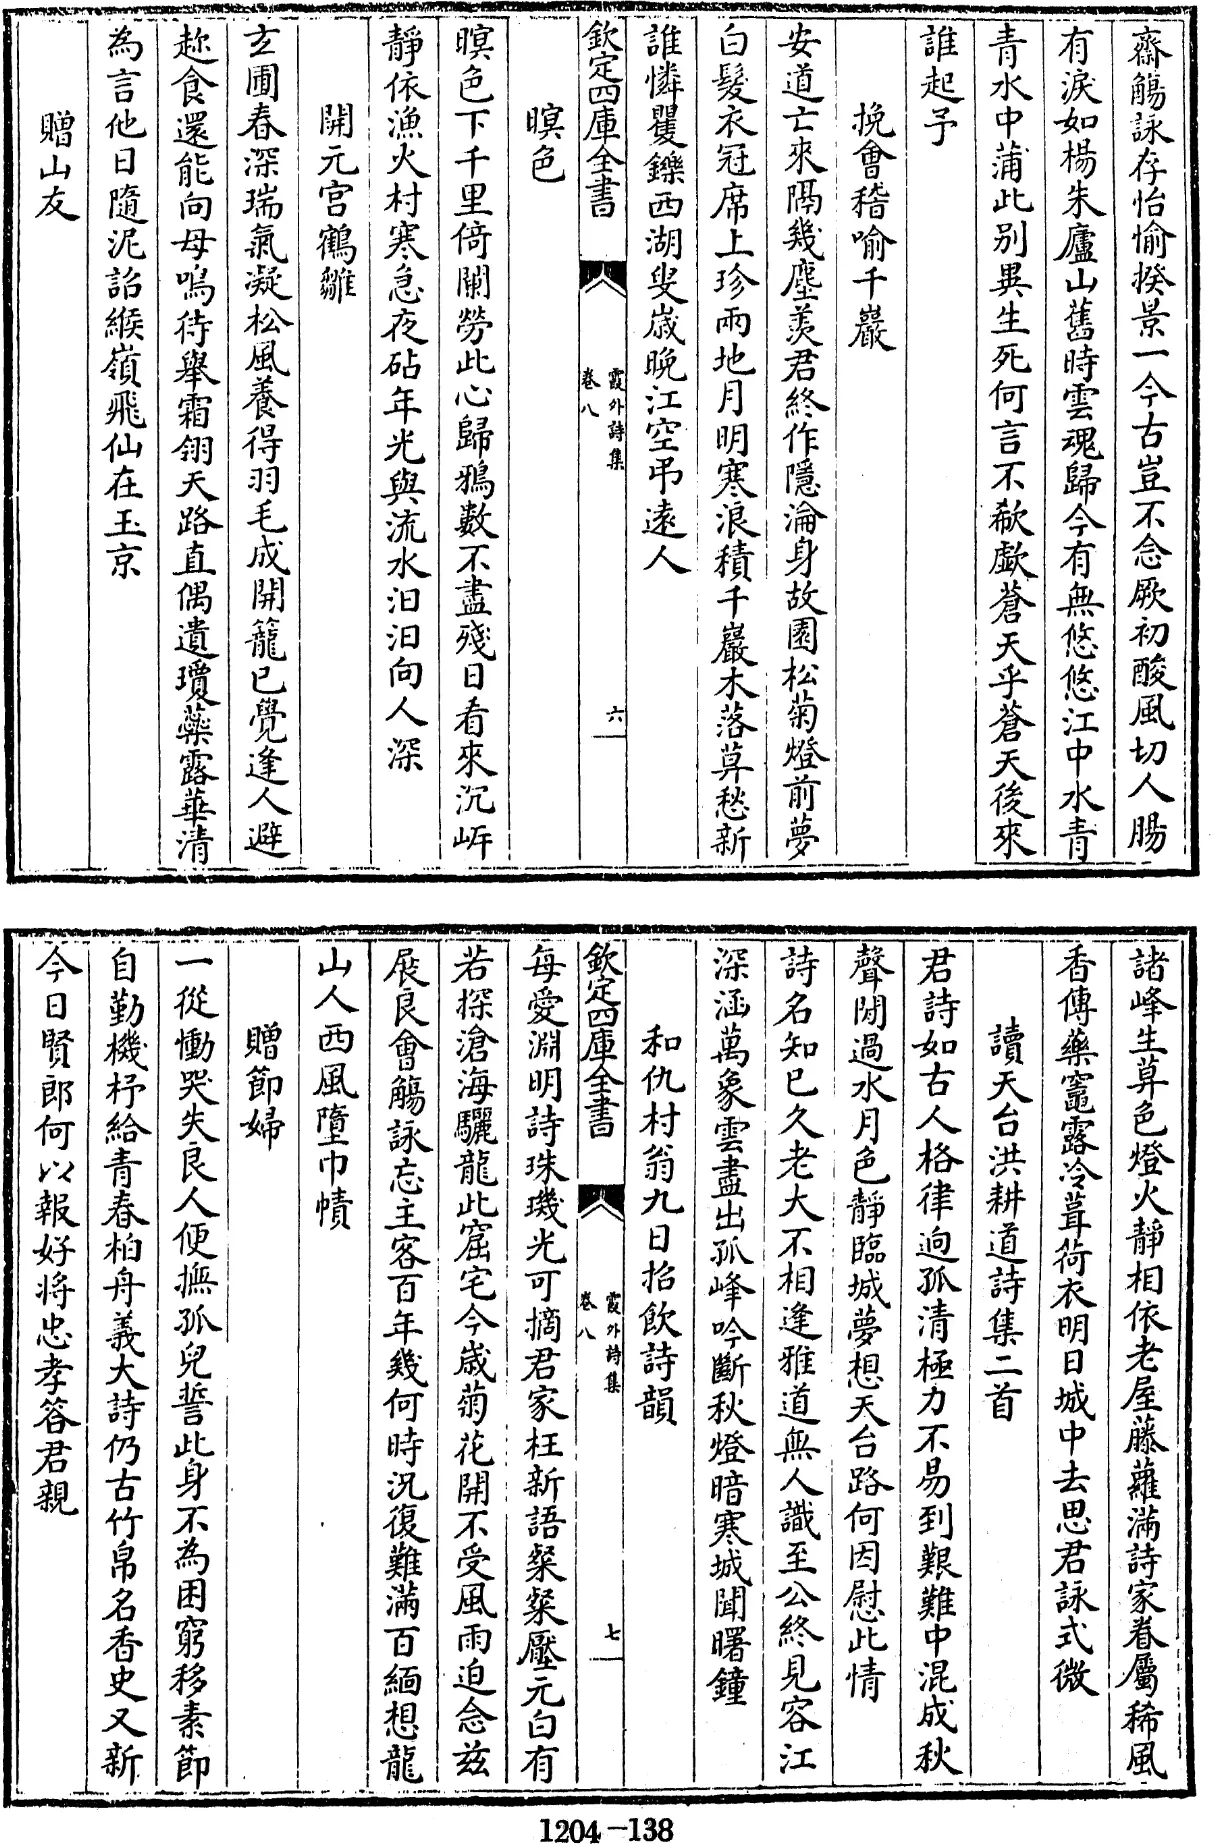 齋觴詠存怡愉揆景一今古豈不念厥初酸風切人腸
有淚如楊朱廬山舊時雲魂歸今有無悠悠江中水青
青水中蒲此別異生死何言不欷歔蒼天乎蒼天後來
誰起予
挽會稽喻千巖
安道亡來隔幾塵羨君終作隱淪身故園松菊燈前夢
白髮衣冠席上珍兩地月明寒浪積千巖木落莫愁新
誰憐矍鑠西湖叟歲晚江空弔遠人
欽定四庫全書
霞外詩集
卷八
六
暝色
暝色下千里倚闌勞此心歸鴉數不盡殘日看來沉岸
靜依漁火村寒急夜砧年光與流水汩汩向人深
開元宮鶴雛
玄圃春深瑞氣凝松風養得羽毛成開籠已覺逢人避
趂食還能向母鳴待舉霜翎天路直偶遺瓊蘂露華清
為言他日隨泥詔緱嶺飛仙在玉京
贈山友
諸峰生莫色燈火靜相依老屋藤蘿滿詩家眷屬稀風
香傳藥竈露冷葺荷衣明日城中去思君詠式微
讀天台洪耕道詩集二首
君詩如古人格律逈孤清極力不易到艱難中混成秋
聲閒過水月色靜臨城夢想天台路何因慰此情
詩名知已久老大不相逢雅道無人識至公終見容江
深涵萬象雲盡出孤峰吟斷秋燈暗寒城聞曙鐘
和仇村翁九日招飲詩韻
欽定四庫全書
霞外詩集
卷八
七
每愛淵明詩珠璣光可摘君家枉新語粲粲壓元白有
若探滄海驪龍此窟宅今歲菊花開不受風雨迫念兹
展良會觴詠忘主客百年幾何時況復難滿百緬想龍
山人西風墮巾幘
贈節婦
一從慟哭失良人便撫孤兒誓此身不為困窮移素節
自勤機杼給青春柏舟義大詩仍古竹帛名香史又新
今日賢郎何以報好將忠孝答君親
1204-138